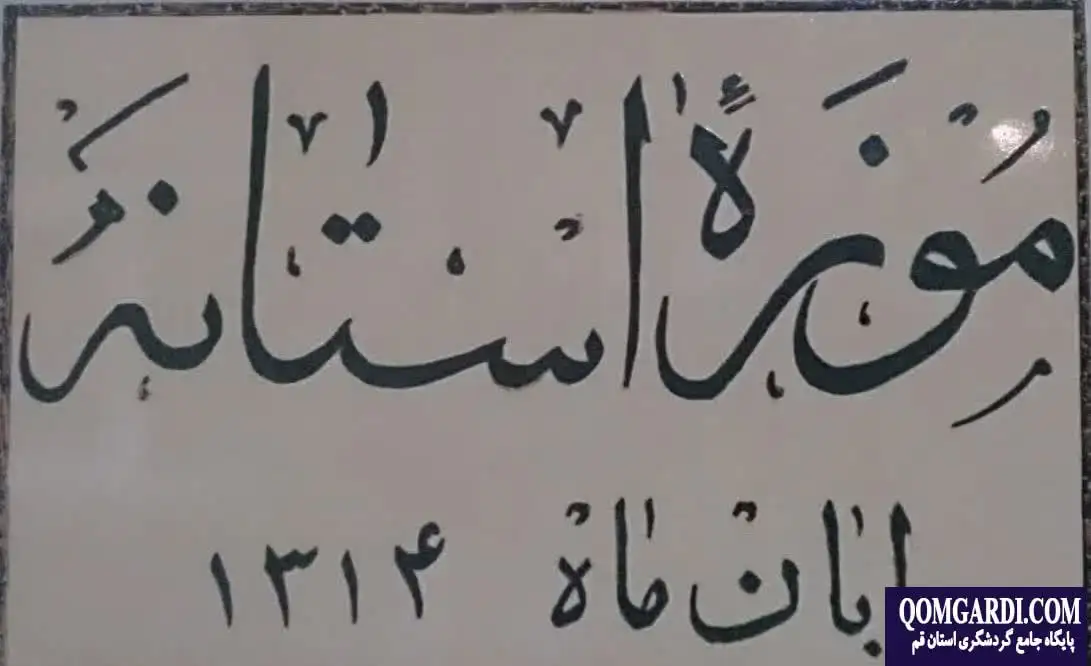 موزهٔ استانه
ابان ماه ۱۳۱۴
QOMGARDI.COM
پایگاه جامع گردشگری استان قم